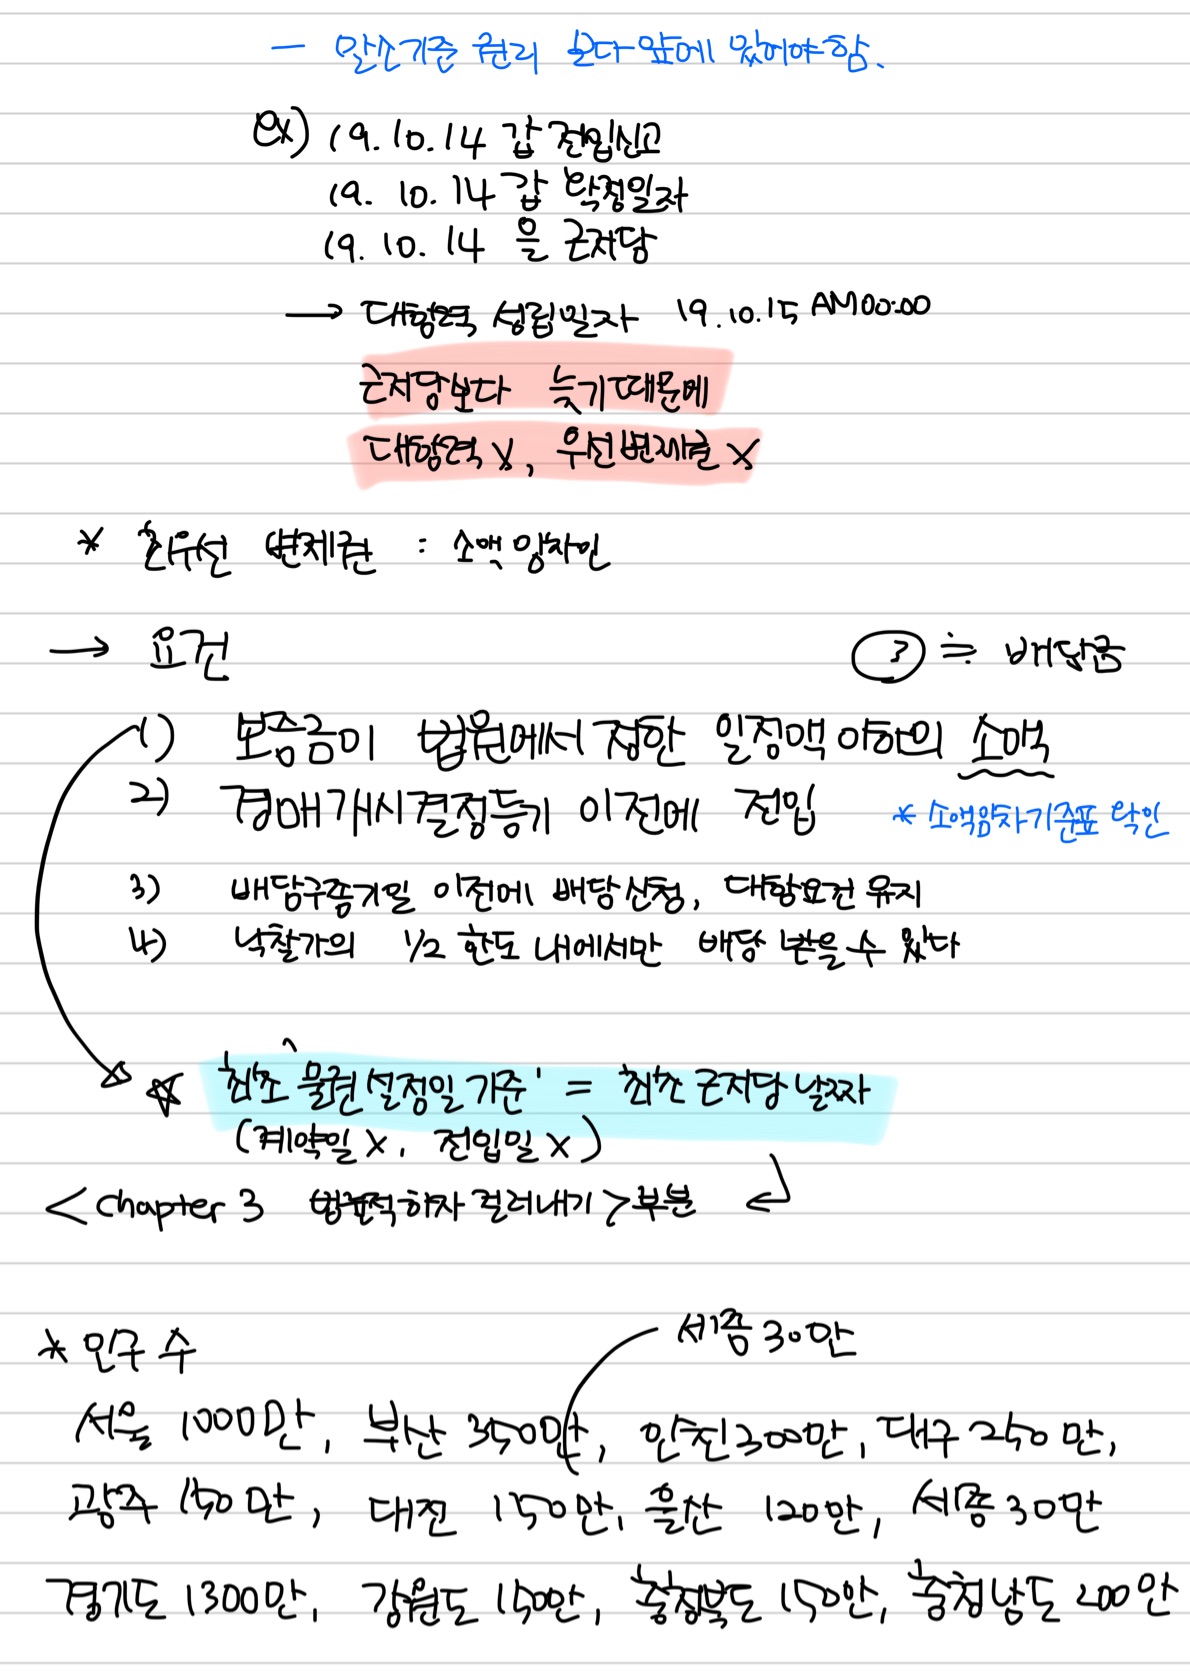 - 말소기준 권리 보다 앞에 있어야함.
ex) 19.10.14 갑 전입신고
19. 10. 14 갑 확정일자
19. 10. 14 을 근저당
→ 대항력 성립일자 19.10.15 AM00:00
근저당보다 늦기때문에
대항력 X, 우선변제권 X
* 최우선 변제권 : 소액임차인
→ 요건
③ ≒ 배당금
1) 보증금이 법원에서 정한 일정액 이하의 소액
2) 경매개시결정등기 이전에 전입
* 소액임차기준표 확인
3) 배당요구종기일 이전에 배당신청, 대항요건 유지
4) 낙찰가의 1/2 한도 내에서만 배당 받을 수 있다
☆ '최초 물권설정일 기준' = 최초 근저당 날짜
(계약일 X, 전입일 X)
<chapter 3 하자 걸러내기> 부분
* 인구 수
세종 30만
서울 1000만, 부산 350만, 인천 300만, 대구 250만,
광주 150만, 대전 150만, 울산 120만, 세종 30만
경기도 1300만, 강원도 150만, 충청북도 150만, 충청남도 200만